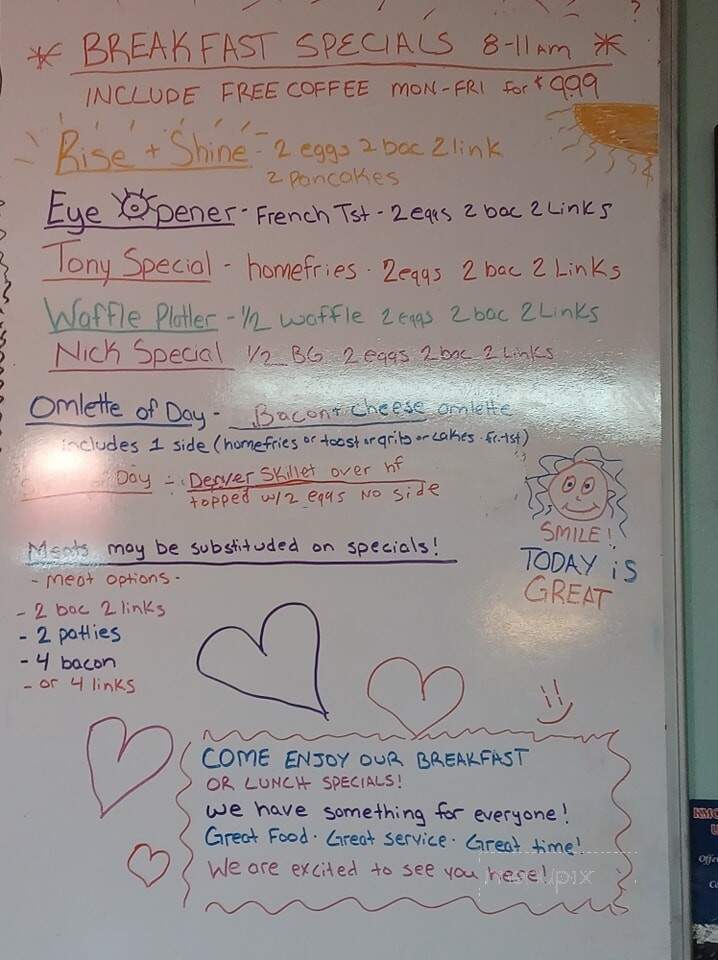 * BREAKFAST SPECIALS 8-11am *
INCLUDE FREE COFFEE MON-FRI for $9.99
Rise + Shine - 2 eggs 2 bac 2 link
2 pancakes
Eye Opener - French Tst - 2 eggs 2 bac 2 Links
Tony Special - homefries - 2 eggs 2 bac 2 Links
Waffle Platter - 1/2 waffle 2 eggs 2 bac 2 Links
Nick Special 1/2 BG 2 eggs 2 bac 2 Links
Omlette of Day - Bacon + cheese omlette
includes 1 side (homefries or toast or grits or cakes - fr. tst)
Day - Denver Skillet over hf
topped w/2 eggs No side
Meats may be substituded on specials!
- meat options -
- 2 bac 2 links
- 2 patties
- 4 bacon
- or 4 links
SMILE!
TODAY iS
GREAT
COME ENJOY OUR BREAKFAST
OR LUNCH SPECIALS!
we have something for everyone!
Great Food. Great service. Great time!
We are excited to see you here!